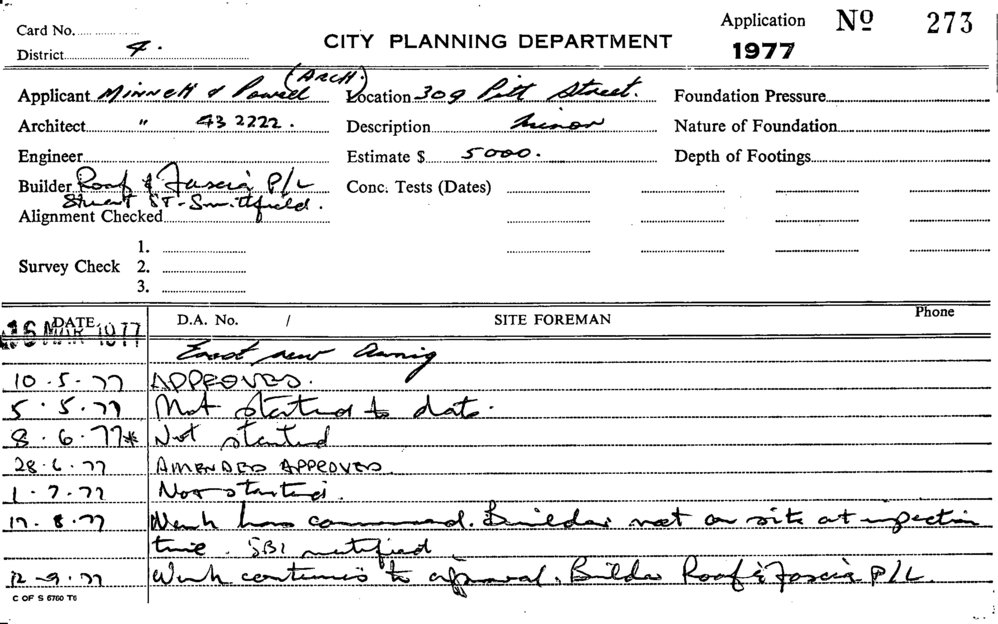 Card No.
District 4.
CITY PLANNING DEPARTMENT
Application No 273
1977
Applicant Minnett & Powell (ARCH.)
Location 309 Pitt Street.
Foundation Pressure
Architect " 43 2222.
Description Minor
Nature of Foundation
Engineer
Estimate $ 5000.
Depth of Footings
Builder Roof & Fascia P/L
Stuart ST - Smithfield.
Conc. Tests (Dates)
Alignment Checked
Survey Check 1.
2.
3.
DATE D.A. No. / SITE FOREMAN Phone
16 MAR 1977
Erect new Awnig
10.5.77 APPROVED.
5.5.77 Not started to date.
8.6.77* Not started
28.6.77 AMENDED APPROVED
1.7.77 Not started.
17.8.77 Work has commenced. Builder not on site at inspection
time. SBI notified
12-9.77 Work continues to approval. Builder Roof & Fascia P/L.
C OF S 6760 T6